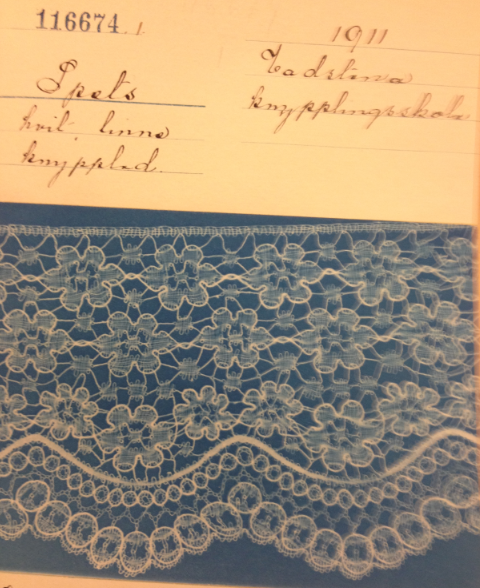 116674. 1.
1911
Spets
hvit, linne
knypplad.
Vadstena
knypplingsskola